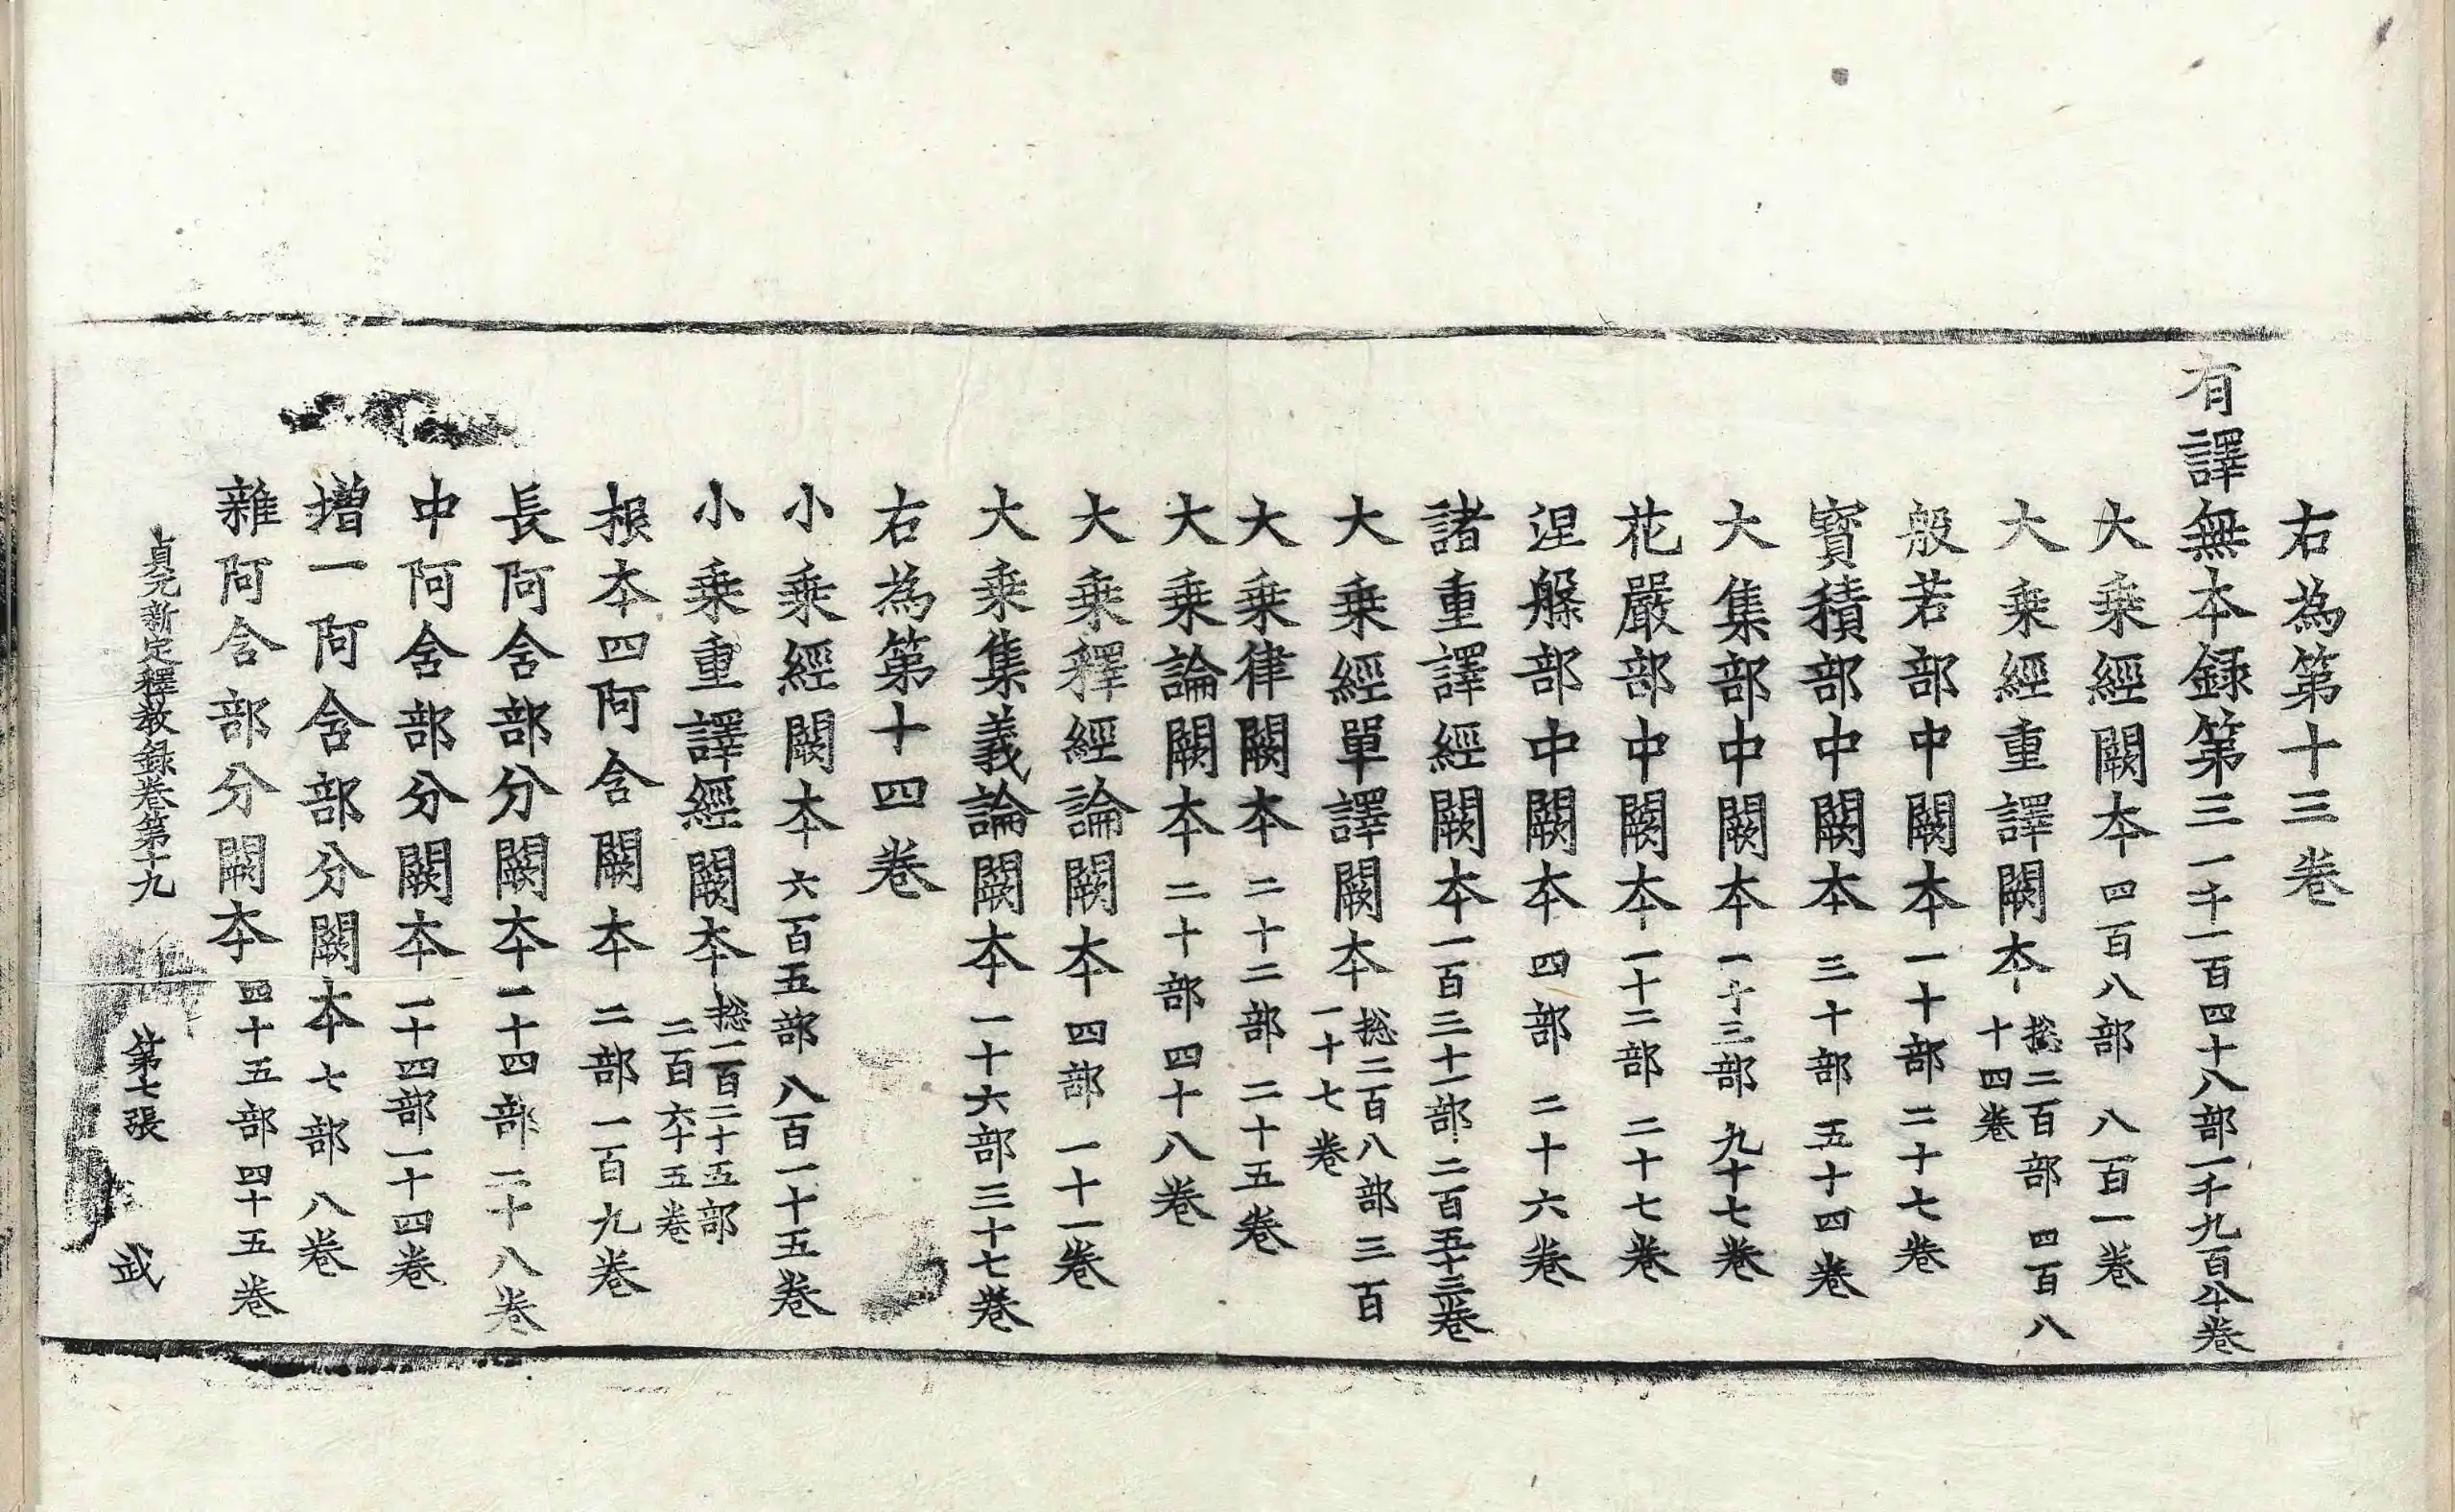 右為第十三卷
有譯無本録第三一千一百四十八部一千九百八十卷
大乗經闕本四百八部八百一卷
大乗經重譯闕本捴二百部四百八
十四卷
般若部中闕本一十部二十七卷
寳積部中闕本三十部五十四卷
大集部中闕本一十三部九十七卷
花嚴部中闕本一十二部二十七卷
涅槃部中闕本四部二十六卷
諸重譯經闕本一百三十一部二百五十三卷
大乗經單譯闕本捴二百八部三百
一十七卷
大乗律闕本二十二部二十五卷
大乗論闕本二十部四十八卷
大乗釋經論闕本四部一十一卷
大乗集義論闕本一十六部三十七卷
右為第十四卷
小乗經闕本六百五部八百一十五卷
小乗重譯經闕本捴一百二十五部
二百六十五卷
根本四阿含闕本二部一百九卷
長阿含部分闕本一十四部二十八卷
中阿含部分闕本一十四部一十四卷
增一阿含部分闕本七部八卷
雜阿含部分闕本四十五部四十五卷
貞元新定釋教録卷第十九 第七張 武